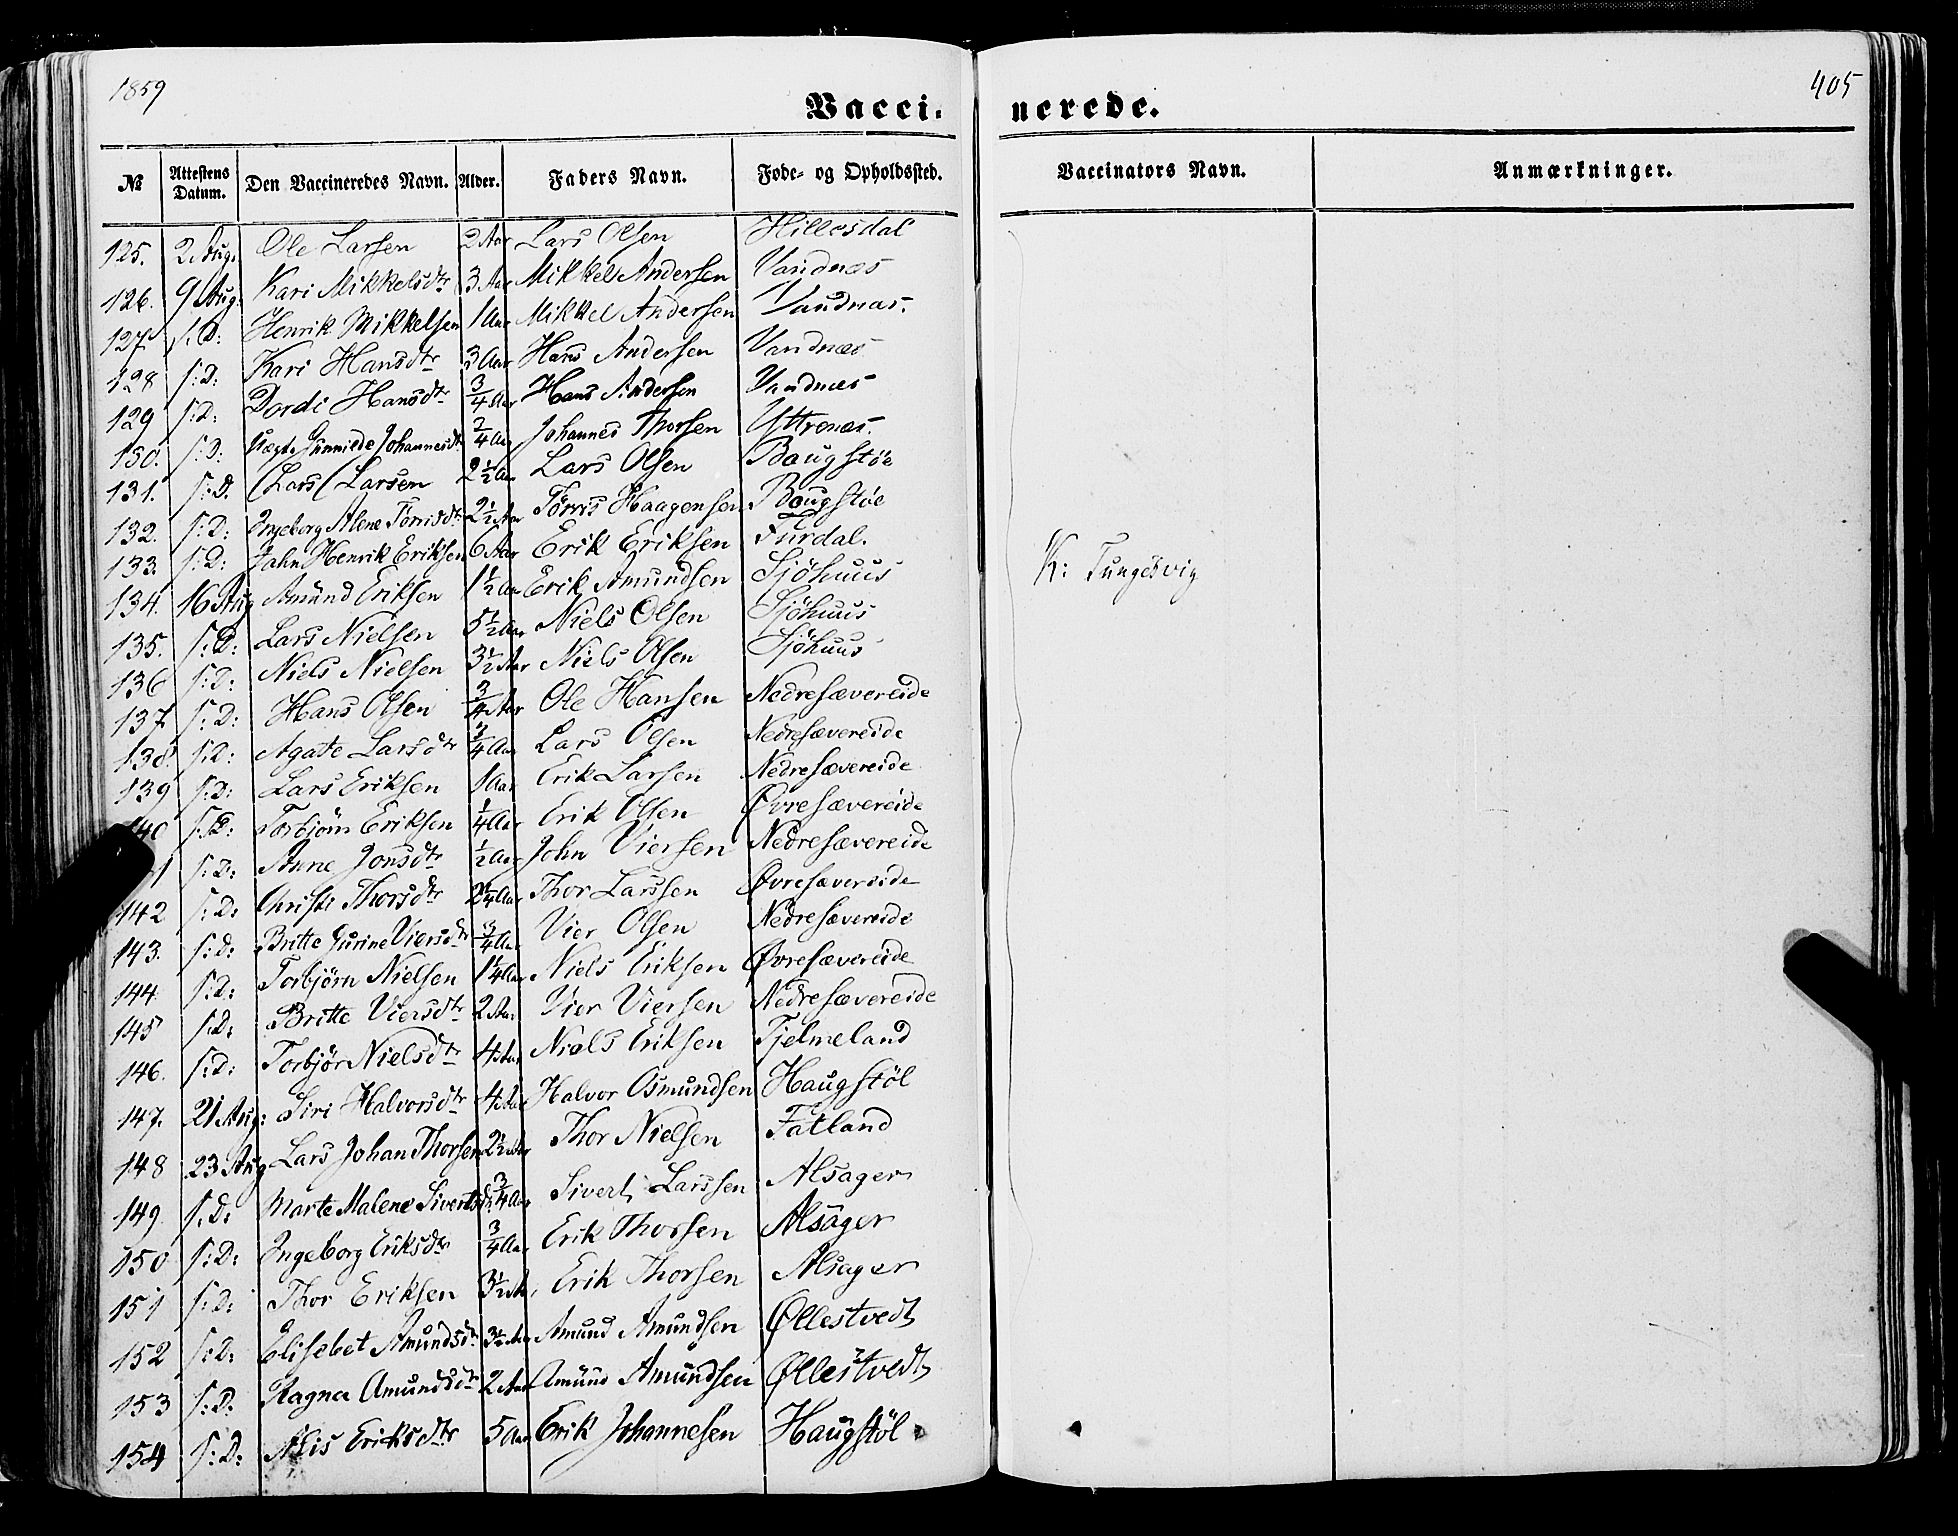 1859
405
Vacci- nerede.
№ Attestens Datum. Den Vaccineredes Navn. Alder. Faders Navn. Føde- og Opholdssted. Vaccinators Navn. Anmærkninger.
125. 2 Aug. Ole Larsen 2 Aar Lars Olsen Hillesdal
126. 9 Aug. Kari Mikkelsdtr 3 Aar Mikkel Andersen Vandnæs
127 s:D: Henrik Mikkelsen 1 Aar Mikkel Andersen Vandnæs.
128 s:D: Kari Hansdtr 3 Aar Hans Andersen Vandnæs
129 s:D: Dordi Hansdtr 3/4 Aar Hans Andersen Vandnæs
130. s:D: Johannesdtr Johannes Thorsen Yttrenæs.
131. s:D. Lars Larsen 2 1/2 Aar Lars Olsen Baugstøe
132. s:D: Ingeborg Alene Tørrisdtr 2 1/2 Aar Tørris Haagensen Baugstøe
133 s:D: John Henrik Eriksen 6 Aar Erik Eriksen Furdal.
134. 16 Aug Amund Eriksen 1 1/2 Aar Erik Amundsen Sjöhuus
135. s:D: Lars Nielsen 5 1/2 Aar Niels Olsen Sjöhuus
136 s:D: Niels Nielsen 3 1/2 Aar Niels Olsen Sjöhuus
137 s:D: Hans Olsen 3/4 Aar Ole Hansen Nedresævereide
138 s:D: Agate Larsdtr 3/4 Aar Lars Olsen Nedresævereide
139 s:D: Lars Eriksen 1 Aar Erik Larsen Nedresævereide
140 s:D: Torbjörn Eriksen 1/4 Aar Erik Olsen Øvresævereide
1 s:D: Anne Jonsdtr 1/2 Aar John Viersen Nedresævereide
142 s:D: Christi Thorsdtr 2 1/4 Aar Thor Larssen Øvresævereide
143. s:D: Britte Gurine Viersdtr 3/4 Aar Vier Olsen Nedresævereide
144 s:D: Torbjörn Nielsen 1 1/4 Aar Niels Eriksen Øvresævereide
145 s:D: Britte Viersdtr 2 Aar Vier Viersen Nedresævereide
146. s:D: Torbjör Nielsdtr 4 Aar Niels Eriksen Fjelmeland
147. 21 Aug: Siri Halvorsdtr 4 Aar Halvor Osmundsen Haugstöl
148 23 Aug Lars Johan Thorsen 2 1/2 Aar Thor Nielsen Fatland
149 s:D: Marte Malene Sivertsdtr 3/4 Aar Sivert Larssen Alsager
150 s:D: Ingeborg Eriksdtr 3/4 Aar Erik Thorsen Alsager
151 s:D: Thor Eriksen 3 1/2 Aar Erik Thorsen Alsager
152 s:D: Elisebet Amundsdtr 3 1/2 Aar Amund Amundsen Øllestvedt
153 s:D: Ragna Amundsdtr 2 Aar Amund Amundsen Øllestvedt
154 s:D: Alis Eriksdtr 5 Aar Erik Johannesen Haugstöl
K: Tungesvig